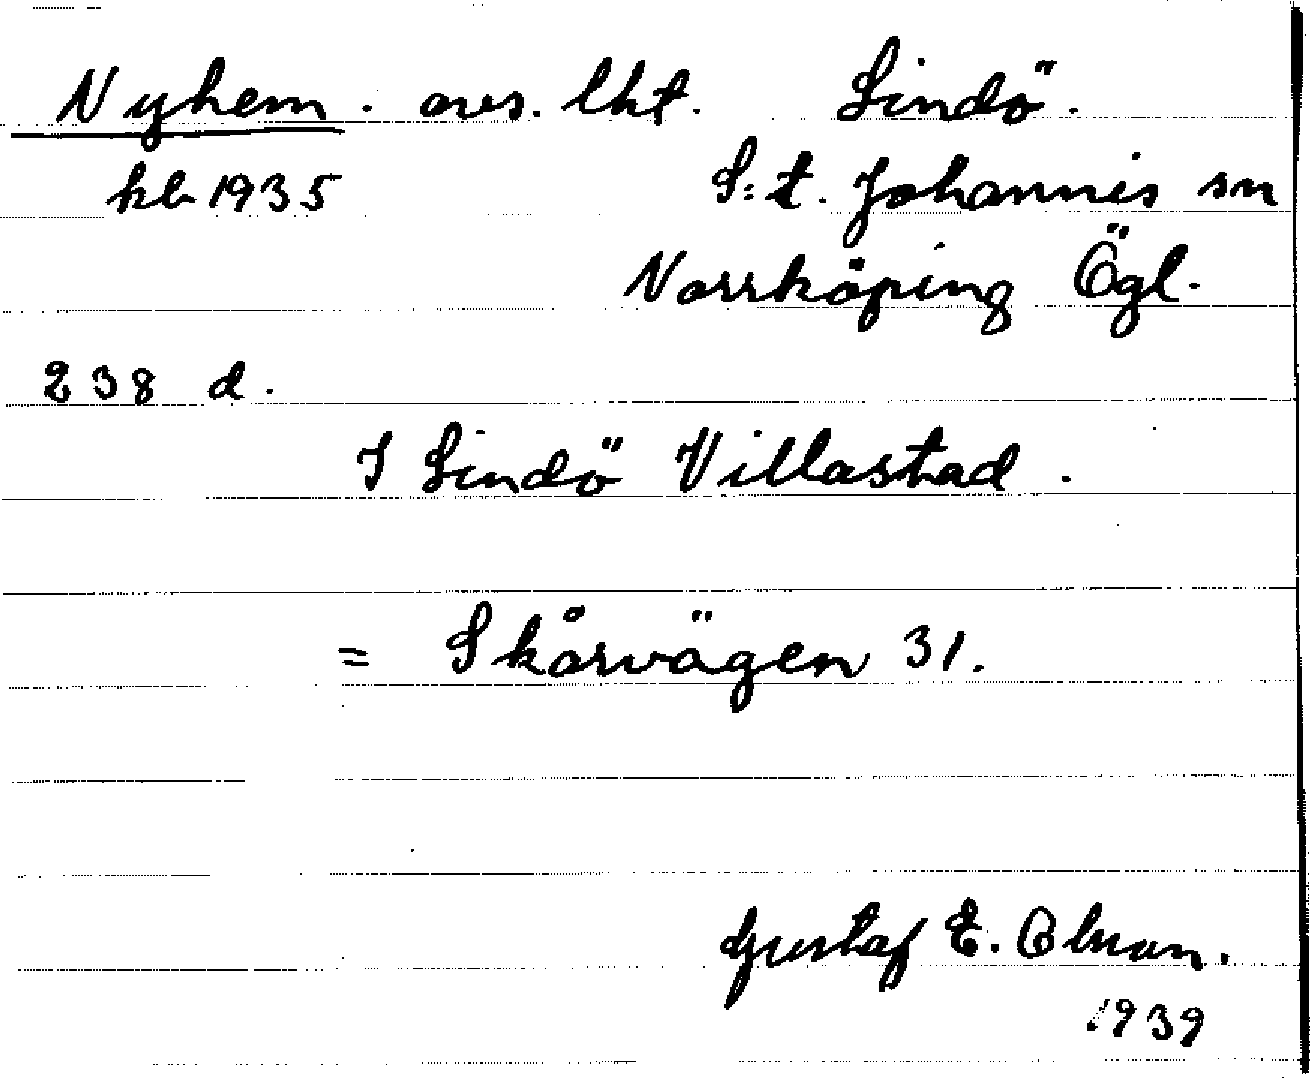 Nyhem. avs. lht. Lindö.
kb 1935 S:t. Johannis sn
Norrköping Ögl.
238 d.
I Lindö Villastad.
= Skårvägen 31.
Gustaf E. Olman.
1939